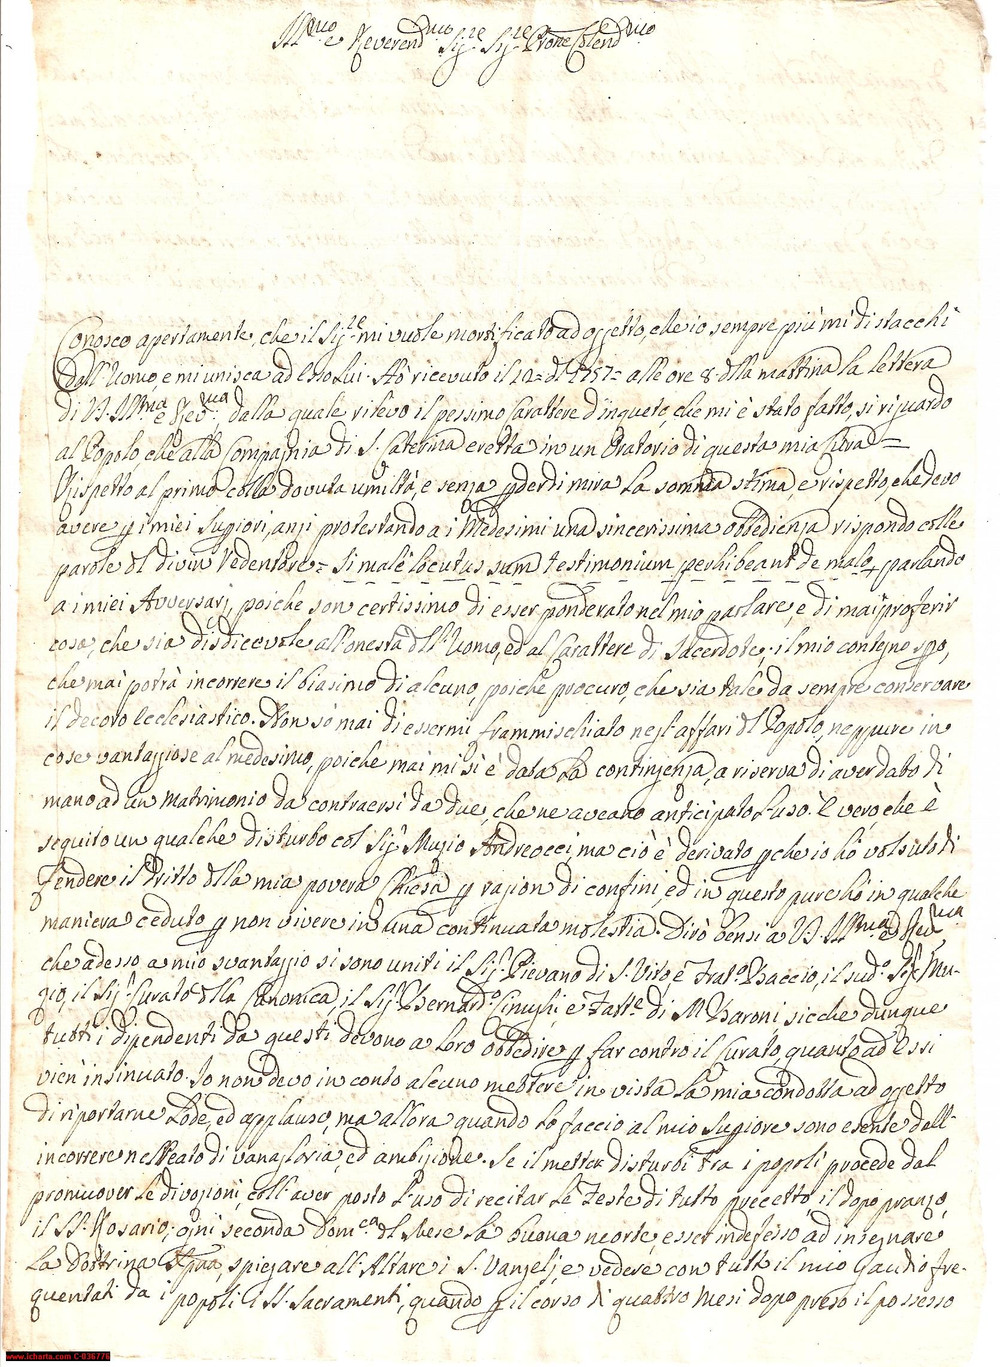 Ill.mo e Reverend.mo Sig.re Sig.re Prone Colend.mo
Conosco apertamente, che il Sig.re mi vuole mortificato ad oggetto, che io sempre più mi distacchi
dall'Uomo, e mi unisca ad esso Lui. Hò ricevuto il 12= dl 1757= alle ore 8. dlla mattina la lettera
di V.S. Ill.ma e Rev.ma, dalla quale rilevo il pessimo Carattere d'inqueto, che mi è stato fatto, si riguardo
al Popolo che alla Compagnia di S. Caterina eretta in un Oratorio di questa mia Cura =
Rispetto al primo colla dovuta umiltà, e senza pderdi mira la somma stima, e rispetto, che devo
avere p i miei Supiori, anzi protestando a i Medesimi una sincerissima obbedienza rispondo colle
parole dl divin Redentore = Si malè locutus sum testimonium perhibeant de malo, parlando
a i miei Avversarj, poiche son certissimo di esser ponderato nel mio parlare, e di mai proferir
cosa, che sia disdicevole all'onestà dll'Uomo, ed al Carattere di Sacerdote; il mio contegno spo,
che mai potrà incorrere il biasimo di alcuno, poichè procuro, che sia tale da sempre conservare
il decoro Ecclesiastico. Non sò mai di essermi frammischiato negl'affari dl Popolo, neppure in
cose vantaggiose al medesimo, poiche mai mi si è data la contingenza, a riserva di aver dato di
mano ad un Matrimonio da contraersi da due, che ne aveano anticipato l'uso. È vero, che è
seguito un qualche disturbo col Sig.r Muzio Andreocci, ma ciò è derivato pche io hò volsuto di
fendere il Dritto dlla mia povera Chiesa p ragion di confini, ed in questo pure hò in qualche
maniera ceduto p non vivere in una continuata molestia. Dirò bensì a V.S. Ill.ma e Rev.ma
che adesso a mio svantaggio si sono uniti il Sig.r Pievano di S. Vito, e frat.o Baccio, il sud.o Sig.r Mu-
zio, il Sig.r Curato dlla Canonica, il Sig.r Bernard.o Cinughi, e Fatt.e di M. Baroni, sicche dunque
tutti i dipendenti da questi devono a loro obbedire p far contro il Curato, quanto ad Essi
vien insinuato. Io non devo in conto alcuno mettere in vista la mia condotta ad oggetto
di riportarne Lode, ed applauso, ma allora quando lo faccio al mio Supiore sono esente dall'
incorrere nel Reato di vanagloria, ed ambizione. Se il metter disturbi tra i popoli procede dal
promuover le divozioni, coll'aver posto l'uso di recitar le Feste di tutto precetto, il dopo pranzo,
il SS. Rosario; ogni seconda Dom.ca dl Mese la buona morte, esser indefesso ad insegnare
la Dottrina Xpna, spiegare all'Altare i S. Vangelj, e vedere con tutt il mio Gaudio fre-
quentati da i popoli i SS. Sacramenti, quando p il corso di quattro Mesi dopo preso il possesso
www.icharta.com C-036776